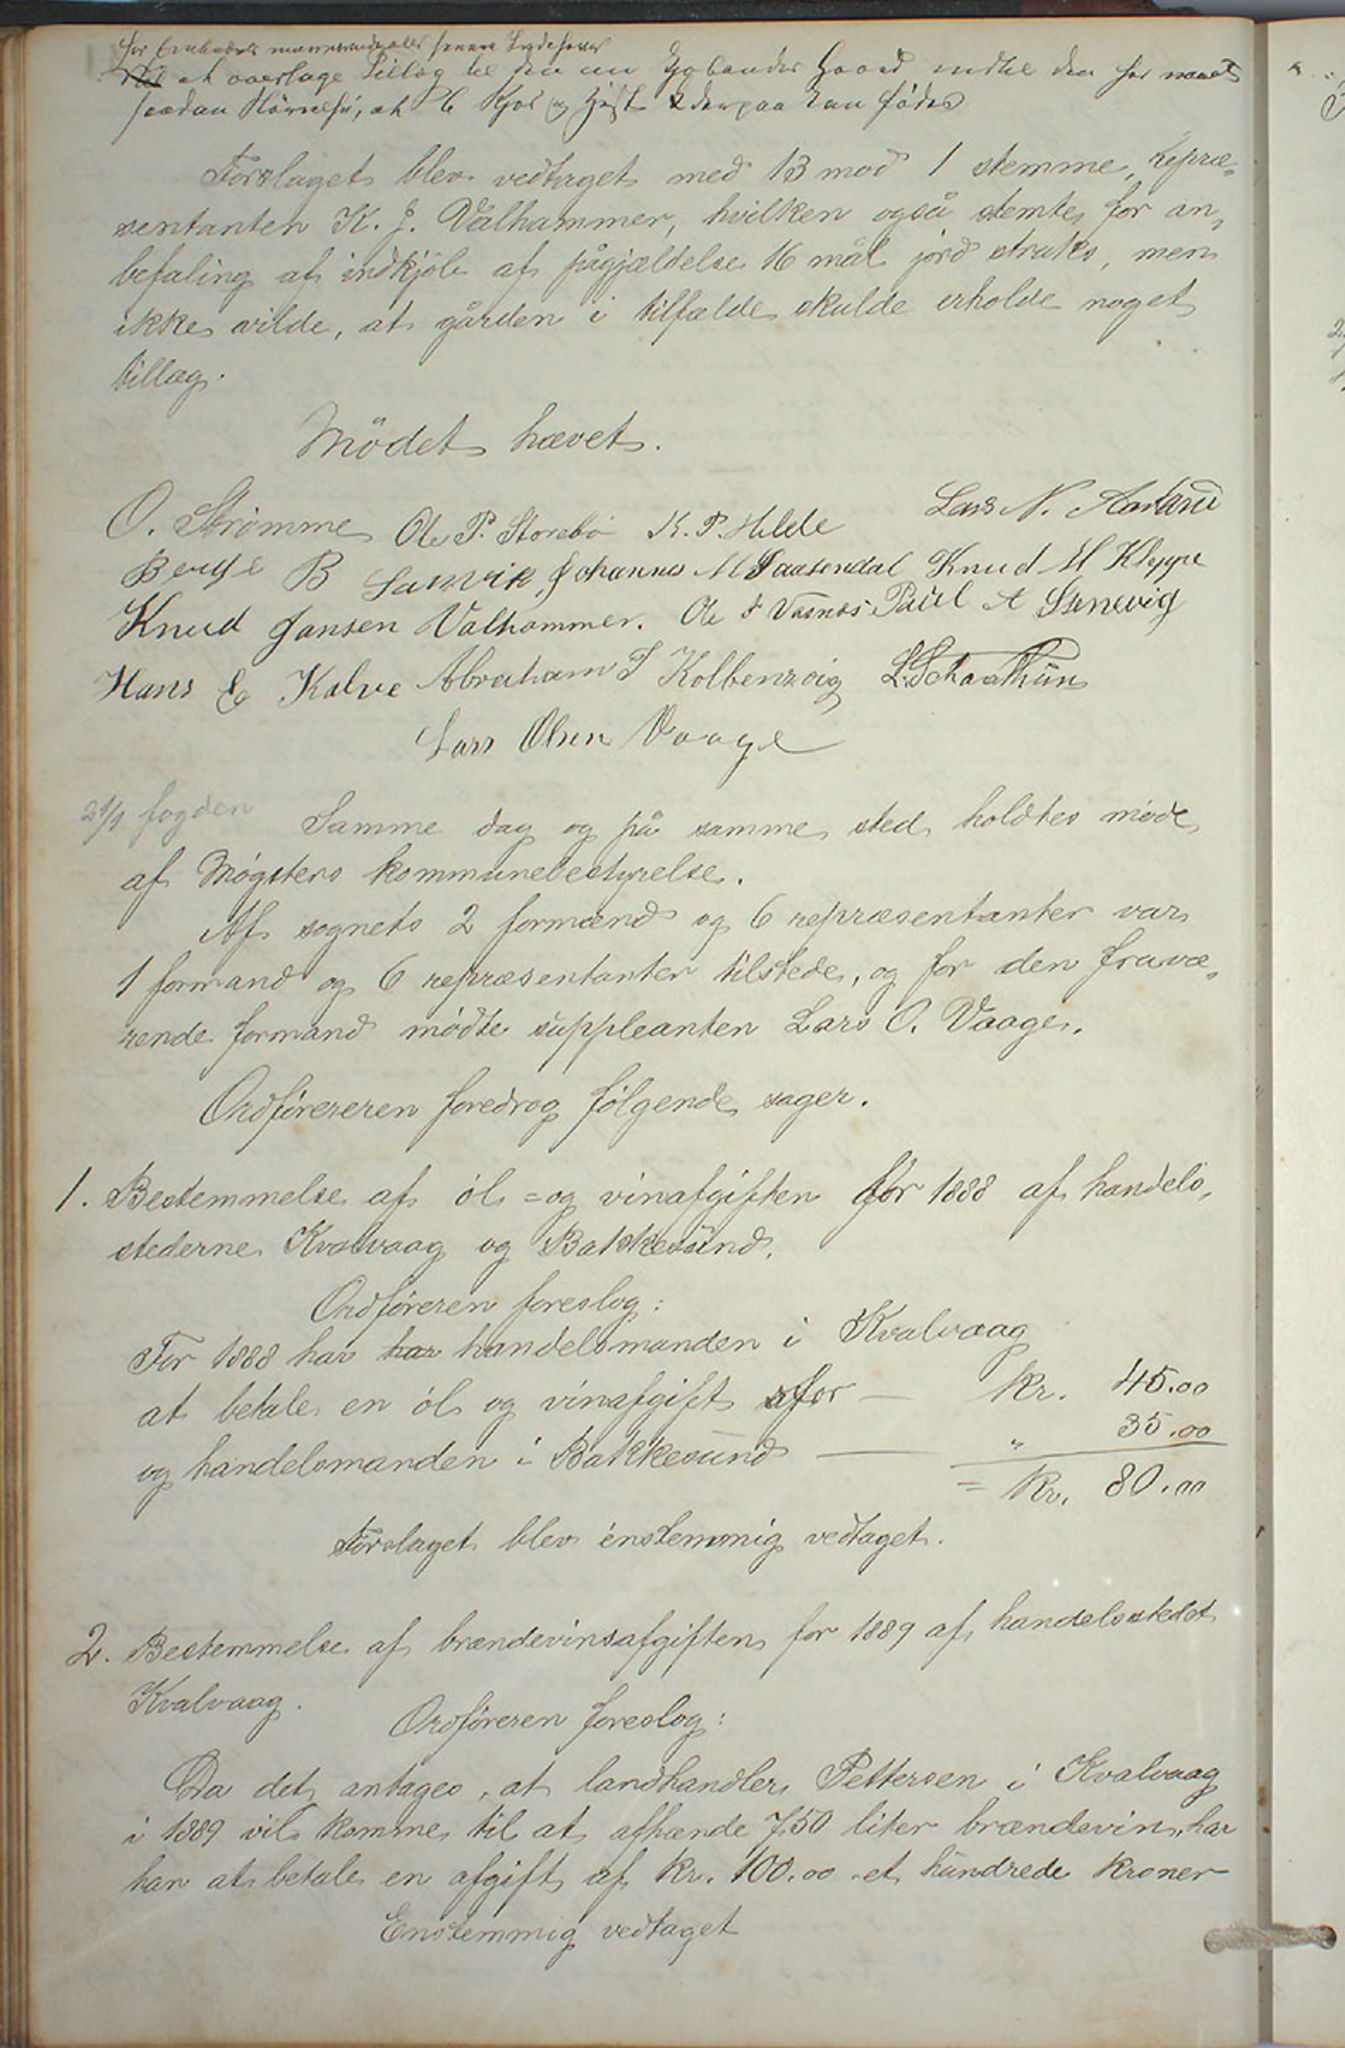 at overtage Tillæg til den nu Gaard indtil den har naaet
saadan Størrelse, at 6 Kjør og Hest kan fødes
Forslaget blev vedtaget med 13 mod 1 stemme, repræ-
sentanten K. J. Valhammer, hvilken også stemte for an-
befaling af indkjøb af pågjældelse 16 mål jord straks, men
ikke vilde, at gården i tilfælde skulde erholde noget
tillæg.
Mödet hævet.
O. Strømme Ole P. Storebø K. P. Hilde Lars N. Aarland
Berge B Sanvik, Johannes M Taasendal Knud M Kleppe
Knud Jansen Valhammer. Ole J Vasnes Paül A Stenevig
Hans Kalve Abraham T Kolbensvig L. Schaathün
Lars Olsen Vaage
21/1 fogden
Samme dag og på samme sted holdtes møde
af Møgsters kommunebestyrelse.
Af sognets 2 formænd og 6 repræsentanter var
1 formand og 6 repræsentanter tilstede, og for den fravæ-
rende formand mødte suppleanten Lars O. Vaage.
Ordførereren foredrog følgende sager.
1. Bestemmelse af øl- og vinafgiften for 1888 af handels-
stederne Kvalvaag og Bakkesünd.
Ordføreren foreslog:
For 1888 har har handelsmanden i Kvalvaag
at betale en øl og vinafgift for — Kr. 45.00
og handelsmanden i Bakkesünd — " 35.00
= Kr. 80.00
Forslaget blev énstemmig vedtaget.
2. Bestemmelse af brændevinsafgiften for 1889 af handelsstedet
Kvalvaag.
Ordføreren foreslog:
Da det antages, at landhandler Pettersen i Kvalvaag
i 1889 vil komme til at afhænde 750 liter brændevin, har
han at betale en afgift af Kr. 100.00 - et hündrede kroner
Enstemmig vedtaget